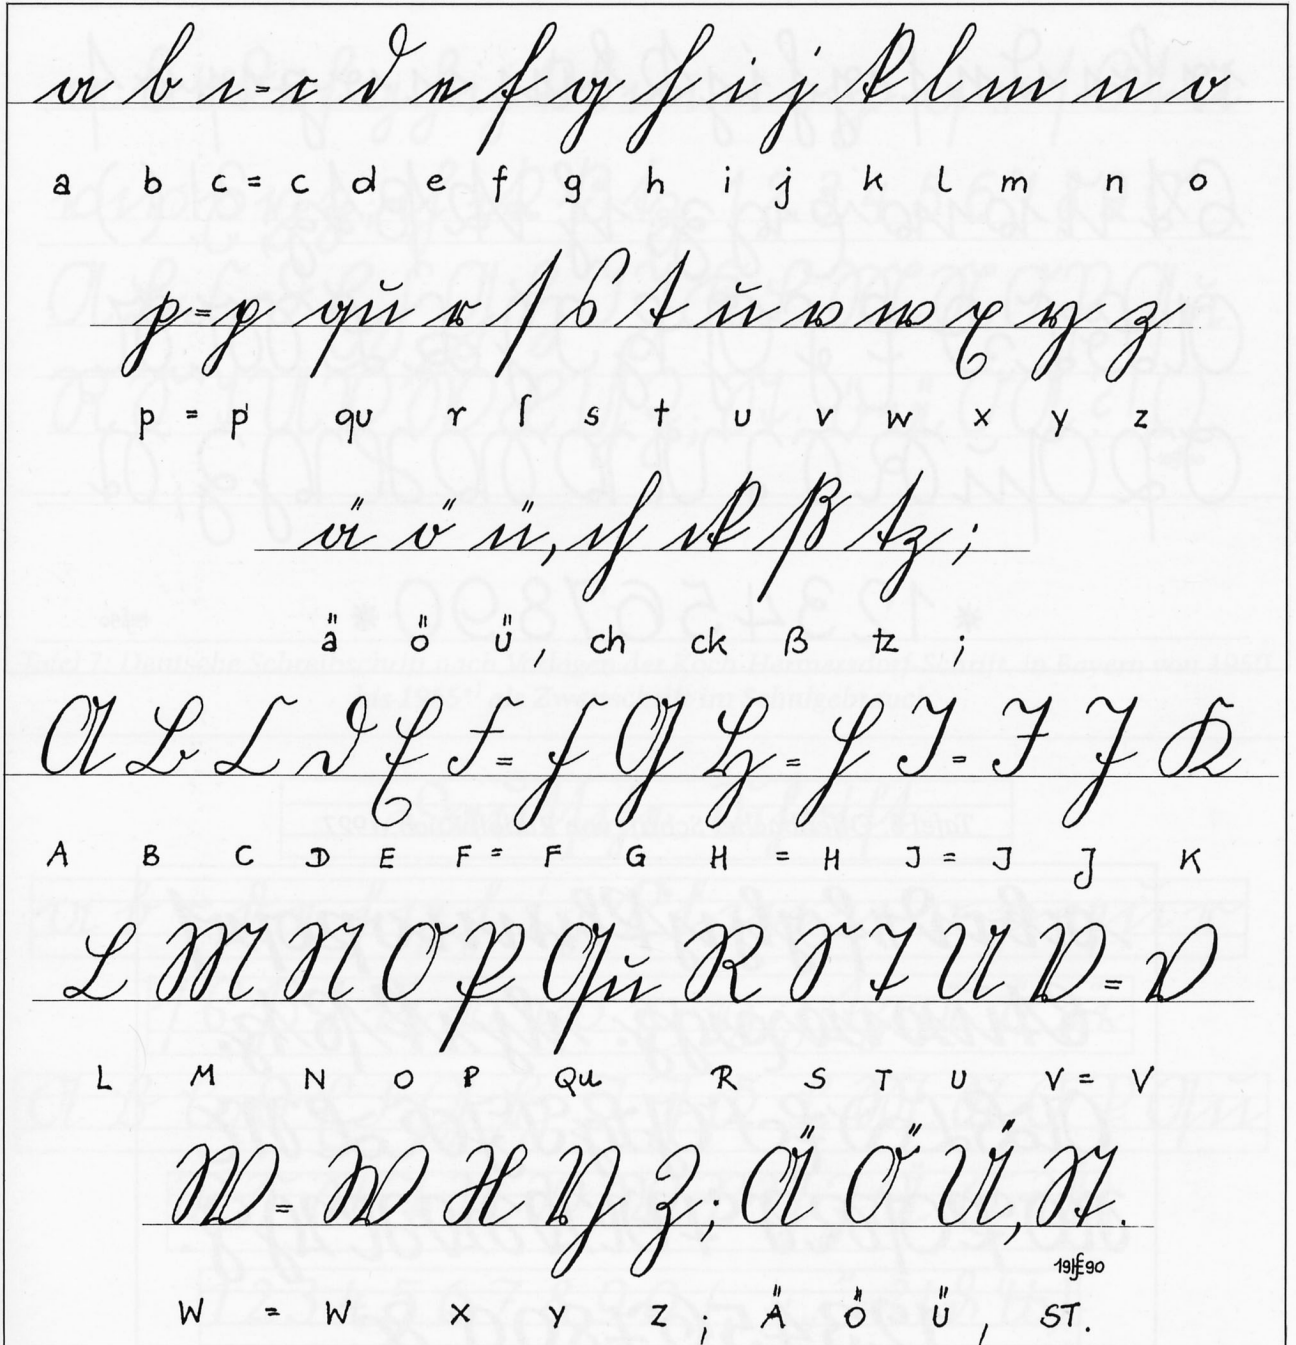 a b c = c d e f g h i j k l m n o
a b c = c d e f g h i j k l m n o
p = p qu r ſ s t u v w x y z
p = p qu r ſ s t u v w x y z
ä ö ü, ch ck ß tz ;
ä ö ü, ch ck ß tz ;
A B C D E F = F G H = H J = J J K
A B C D E F = F G H = H J = J J K
L M N O P Qu R S T U V = V
L M N O P Qu R S T U V = V
W = W X Y Z ; Ä Ö Ü, St.
W = W X Y Z ; Ä Ö Ü, ST.